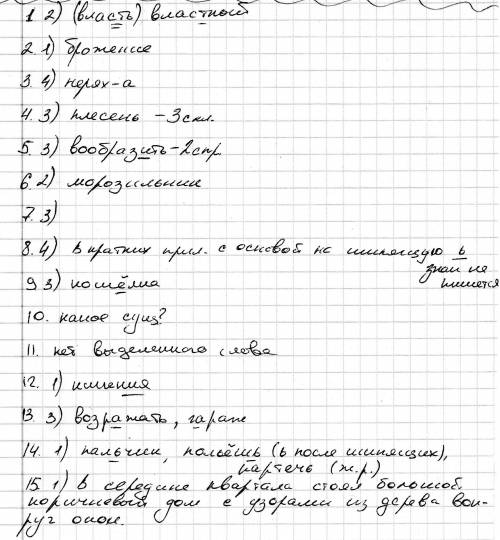 1. 2) (власть) властный
2. 1) брожение
3. 4) нерях-а
4. 3) плесень - 3 скл.
5. 3) вообразить - 2 спр.
6. 2) морозильник
7. 3)
8. 4) в кратких прил. с основой на шипящую ь
знак не
пишется
9 3) кошёлка
10. какое сущ?
11. нет выделенного слова
12. 1) кипения
13. 3) возражать, гараж
14. 1) пальчик, польёшь (ь после шипящих),
картечь (ж.р.)
15. 1) В середине квартала стоял большой
коричневый дом с узорами из дерева вок-
руг окон.